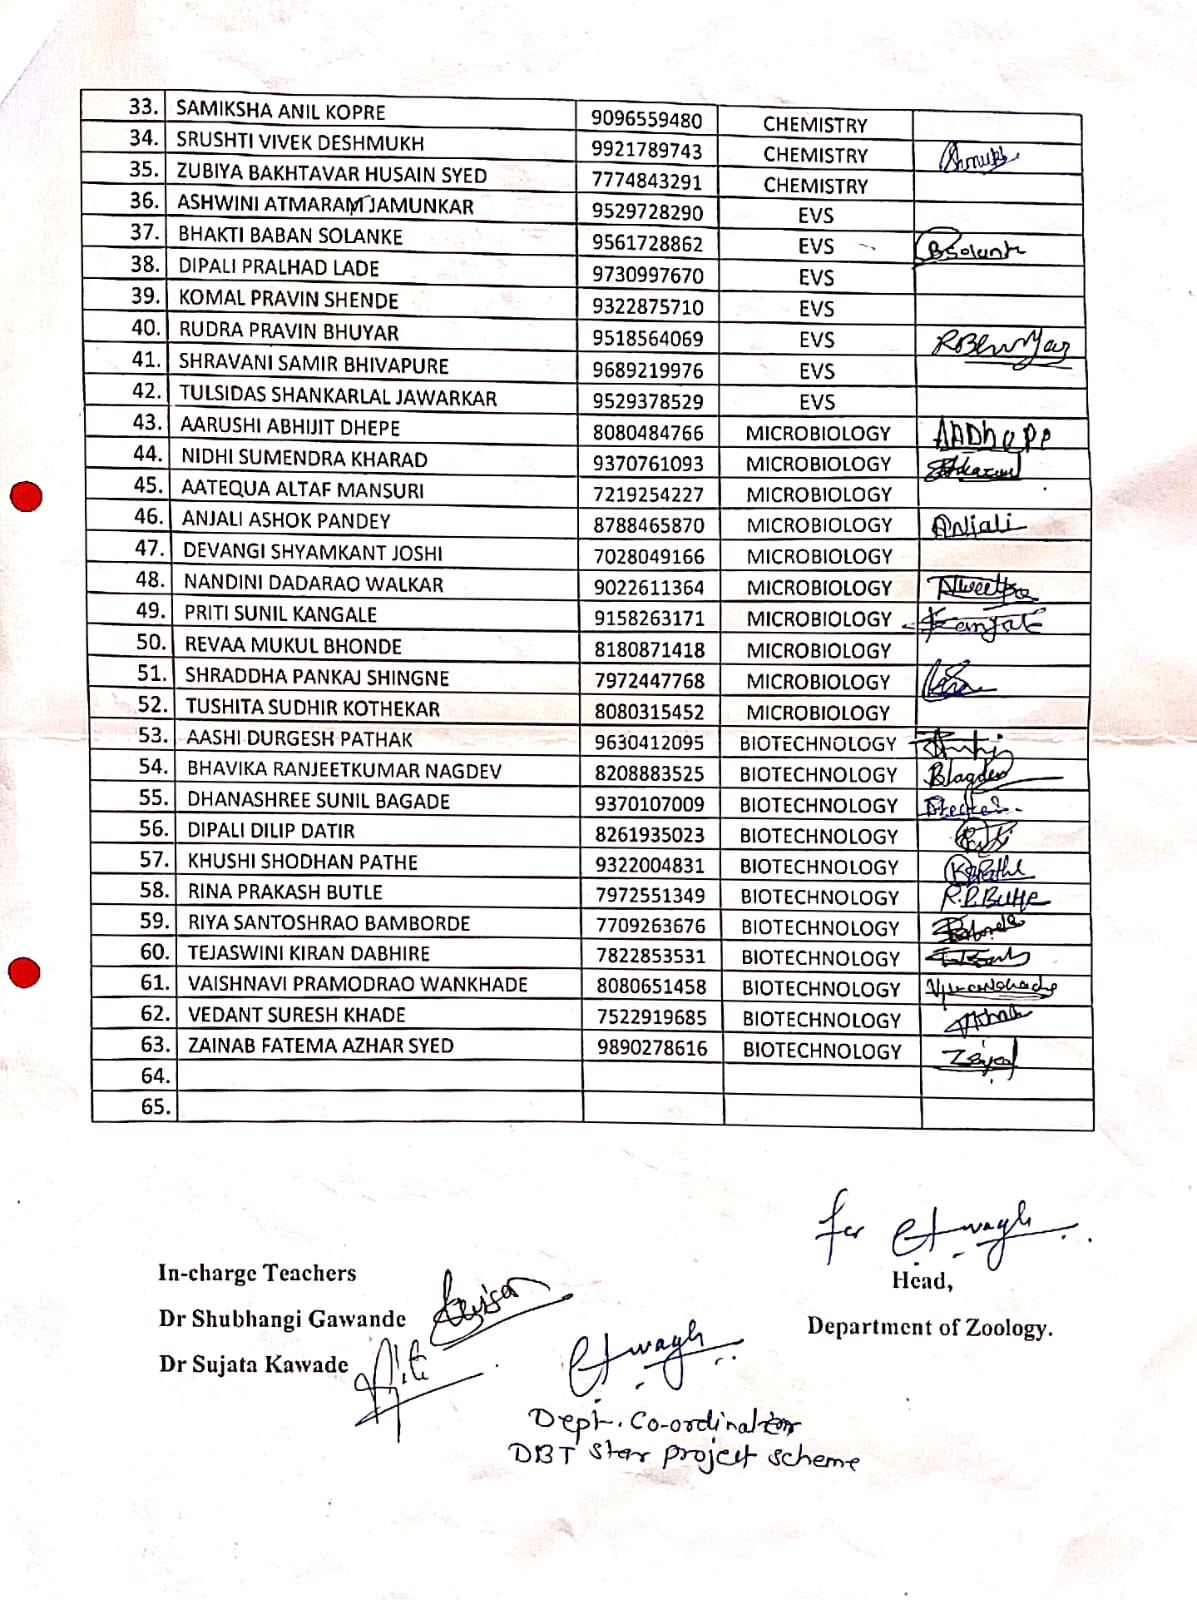 33. SAMIKSHA ANIL KOPRE 9096559480 CHEMISTRY
34. SRUSHTI VIVEK DESHMUKH 9921789743 CHEMISTRY
35. ZUBIYA BAKHTAVAR HUSAIN SYED 7774843291 CHEMISTRY
36. ASHWINI ATMARAM JAMUNKAR 9529728290 EVS
37. BHAKTI BABAN SOLANKE 9561728862 EVS BSolanke
38. DIPALI PRALHAD LADE 9730997670 EVS
39. KOMAL PRAVIN SHENDE 9322875710 EVS
40. RUDRA PRAVIN BHUYAR 9518564069 EVS
41. SHRAVANI SAMIR BHIVAPURE 9689219976 EVS
42. TULSIDAS SHANKARLAL JAWARKAR 9529378529 EVS
43. AARUSHI ABHIJIT DHEPE 8080484766 MICROBIOLOGY AADhepe
44. NIDHI SUMENDRA KHARAD 9370761093 MICROBIOLOGY
45. AATEQUA ALTAF MANSURI 7219254227 MICROBIOLOGY
46. ANJALI ASHOK PANDEY 8788465870 MICROBIOLOGY Anjali
47. DEVANGI SHYAMKANT JOSHI 7028049166 MICROBIOLOGY
48. NANDINI DADARAO WALKAR 9022611364 MICROBIOLOGY
49. PRITI SUNIL KANGALE 9158263171 MICROBIOLOGY
50. REVAA MUKUL BHONDE 8180871418 MICROBIOLOGY
51. SHRADDHA PANKAJ SHINGNE 7972447768 MICROBIOLOGY
52. TUSHITA SUDHIR KOTHEKAR 8080315452 MICROBIOLOGY
53. AASHI DURGESH PATHAK 9630412095 BIOTECHNOLOGY
54. BHAVIKA RANJEETKUMAR NAGDEV 8208883525 BIOTECHNOLOGY
55. DHANASHREE SUNIL BAGADE 9370107009 BIOTECHNOLOGY
56. DIPALI DILIP DATIR 8261935023 BIOTECHNOLOGY
57. KHUSHI SHODHAN PATHE 9322004831 BIOTECHNOLOGY KSPathe
58. RINA PRAKASH BUTLE 7972551349 BIOTECHNOLOGY R.P.Butle
59. RIYA SANTOSHRAO BAMBORDE 7709263676 BIOTECHNOLOGY
60. TEJASWINI KIRAN DABHIRE 7822853531 BIOTECHNOLOGY
61. VAISHNAVI PRAMODRAO WANKHADE 8080651458 BIOTECHNOLOGY
62. VEDANT SURESH KHADE 7522919685 BIOTECHNOLOGY
63. ZAINAB FATEMA AZHAR SYED 9890278616 BIOTECHNOLOGY
64.
65.
for
In-charge Teachers
Head,
Dr Shubhangi Gawande
Department of Zoology.
Dr Sujata Kawade
Dept. Co-ordinator
DBT Star project scheme